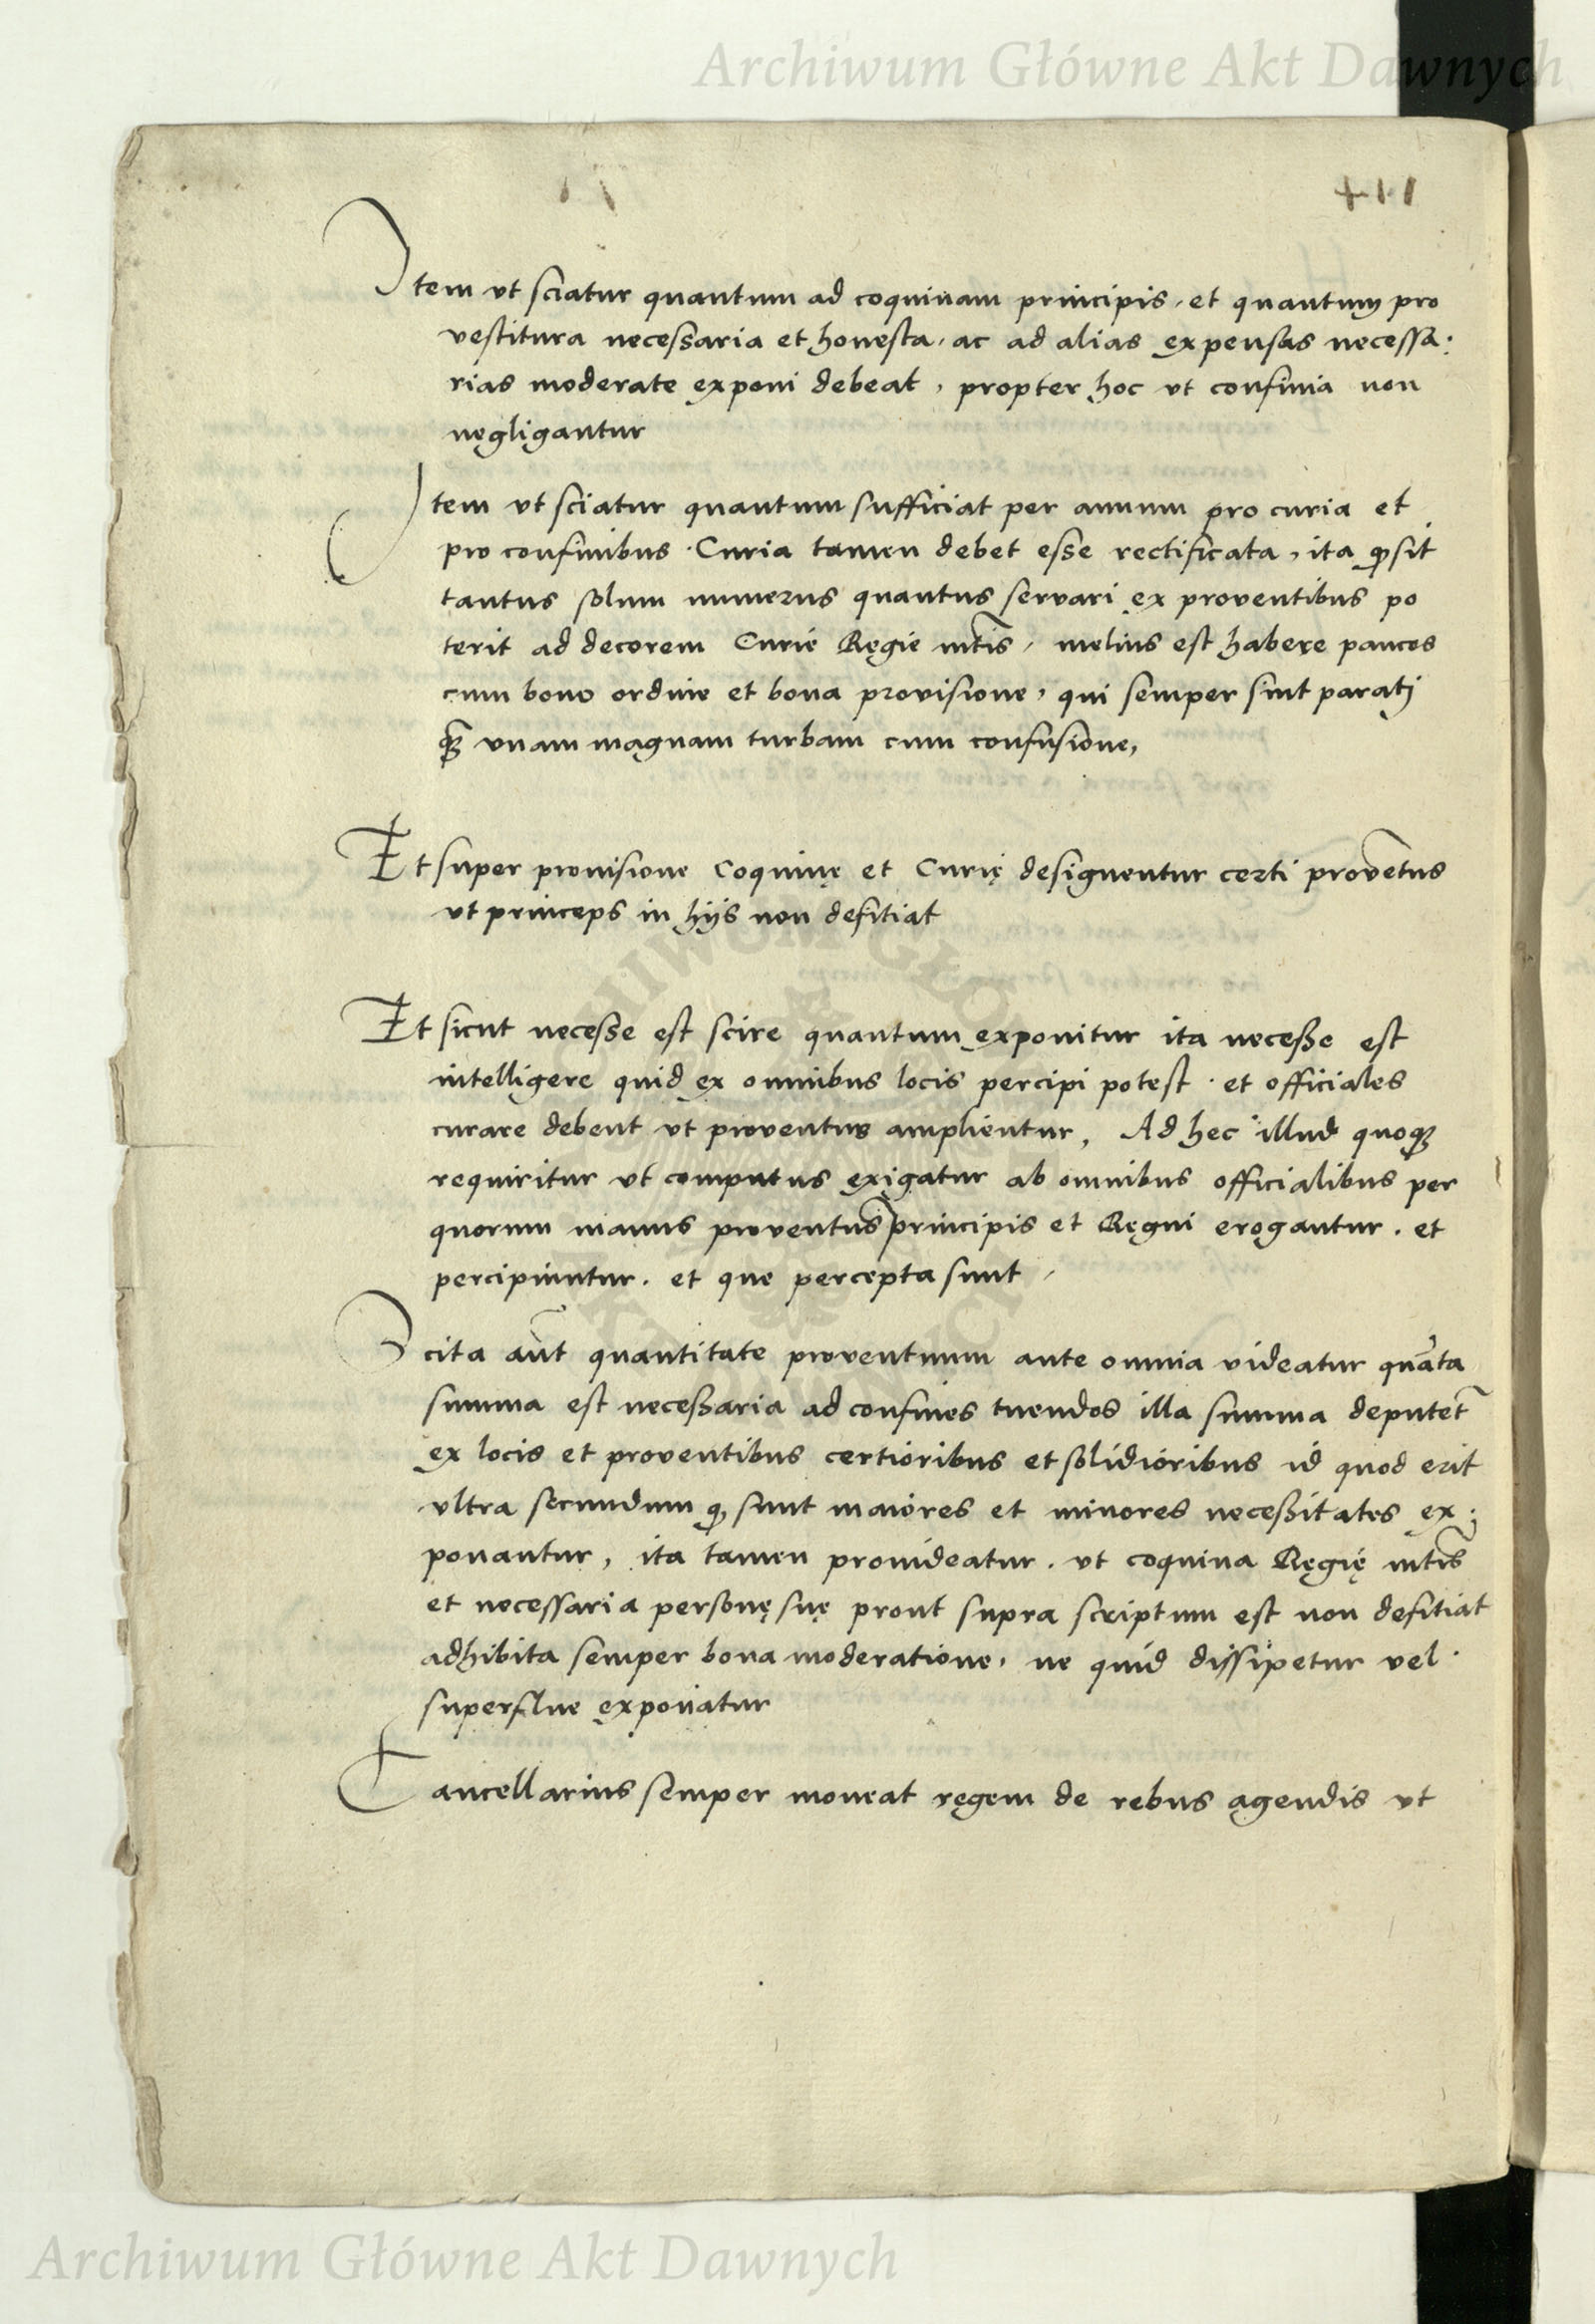 Archiwum Główne Akt Dawnych
Item vt sciatur quantum ad coquinam principis, et quantum pro
vestitura necessaria et honesta, ac ad alias expensas necessa:
rias moderate exponi debeat, propter hoc vt confinia non
negligantur
Item vt sciatur quantum sufficiat per annum pro curia et
pro confinibus. Curia tamen debet esse rectificata, ita ꝙ sit
tantus solum numerus quantus servari ex proventibus po
terit ad decorem Curie Regie mtis, melius est habere paucos
cum bono ordine et bona provisione, qui semper sint paratj
ꝙ̃ vnam magnam turbam cum confusione,
Et super prouisione Coquinę et Curię designentur certi proventus
vt princeps in hijs non defitiat
Et sicut necesse est scire quantum exponitur ita necesse est
intelligere quid ex omnibus locis percipi potest. et officiales
curare debent vt proventus amplientur, Ad hec illud quoqꝫ
requiritur vt computus exigatur ab omnibus officialibus per
quorum manus proventus principis et Regni erogantur. et
percipiuntur. et que percepta sunt,
Scita aũt quantitate proventuum ante omnia videatur quãta
summa est necessaria ad confines tuendos illa summa deputet̃
ex locis et proventibus certioribus et solidioribus id quod erit
vltra secundum ꝙ sunt maiores et minores necessitates ex:
ponantur, ita tamen prouideatur. vt coquina Regię mtis
et necessaria personę suę prout supra scriptum est non defitiat
adhibita semper bona moderatione, ne quid dissipetur vel
superflue exponatur
Cancellarius semper moneat regem de rebus agendis vt
Archiwum Główne Akt Dawnych